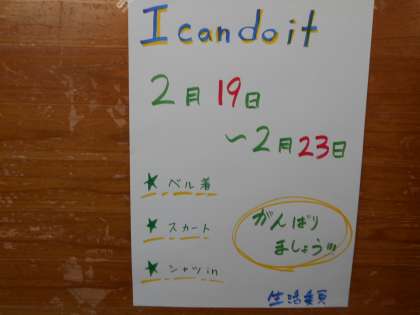 I can do it
2月19日
~2月23日
★ベル着
★スカート
★シャツin
がんばり
ましょう!!!
生活委員